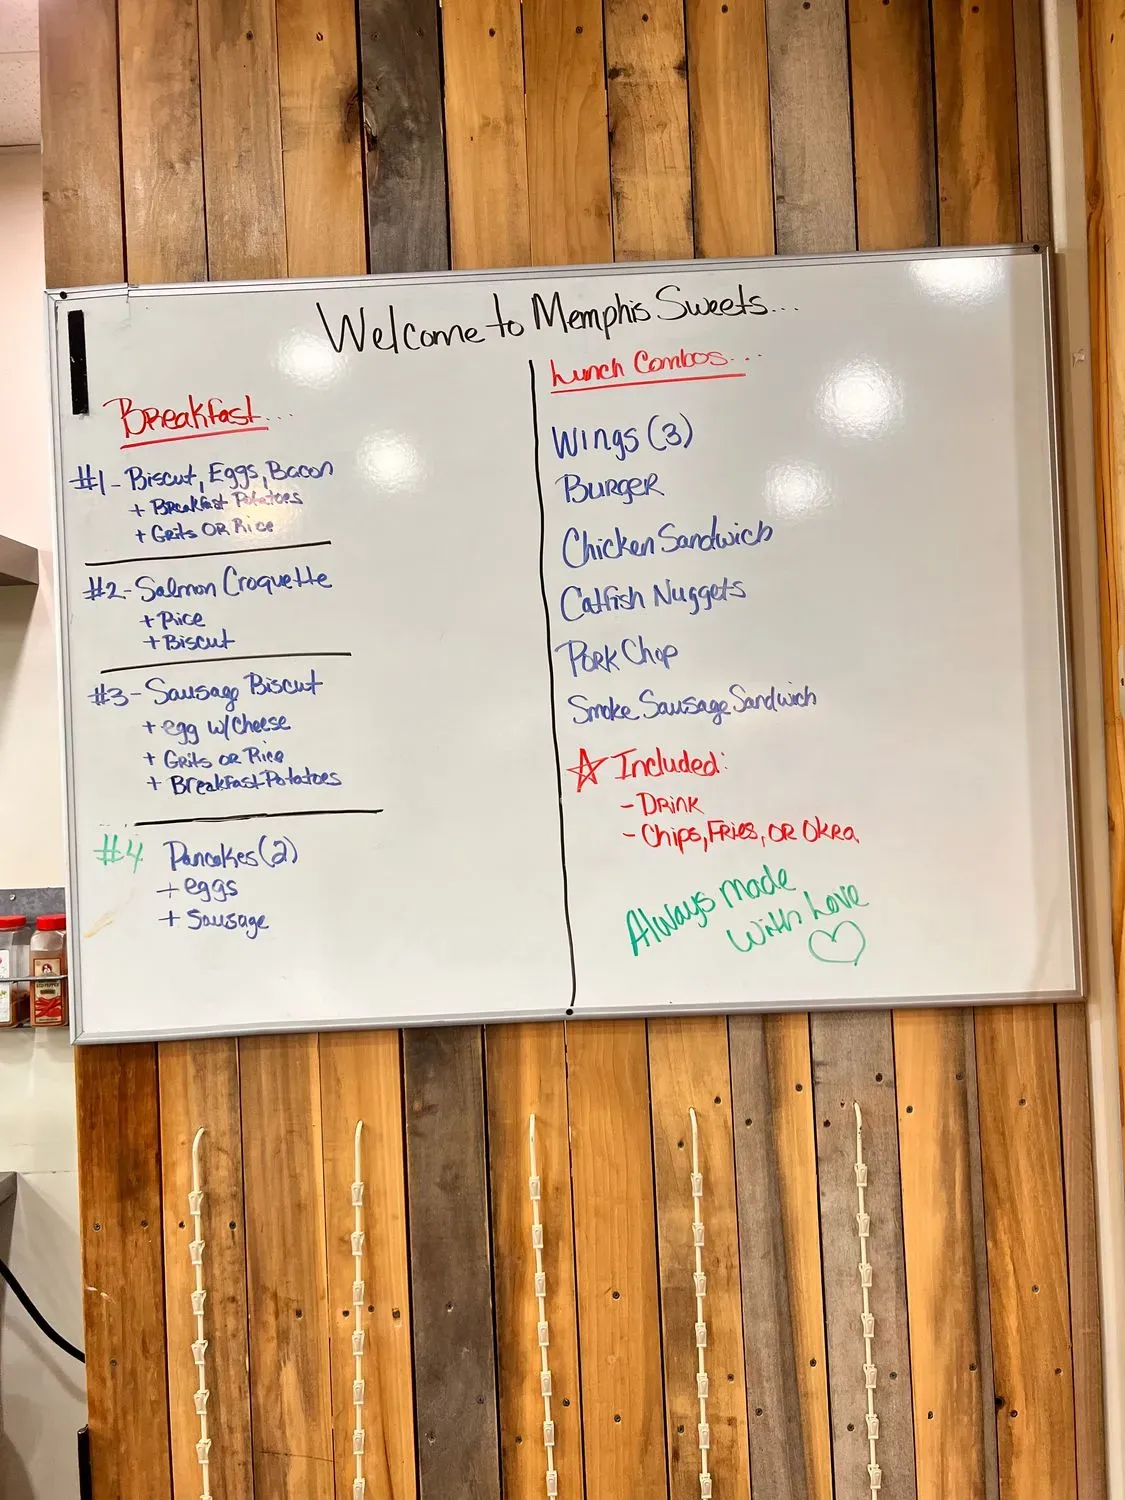 Welcome to Memphis Sweets...
Breakfast...
#1- Biscut, Eggs, Bacon
+ Breakfast Potatoes
+ Grits OR Rice
#2- Salmon Croquette
+ Rice
+ Biscut
#3- Sausage Biscut
+ egg w/ Cheese
+ Grits OR Rice
+ Breakfast Potatoes
#4 Pancakes (2)
+ eggs
+ Sausage
Lunch Combos...
Wings (3)
Burger
Chicken Sandwich
Catfish Nuggets
Pork Chop
Smoke Sausage Sandwich
☆ Included:
- Drink
- Chips, Fries, OR Okra
Always made
with Love
♡